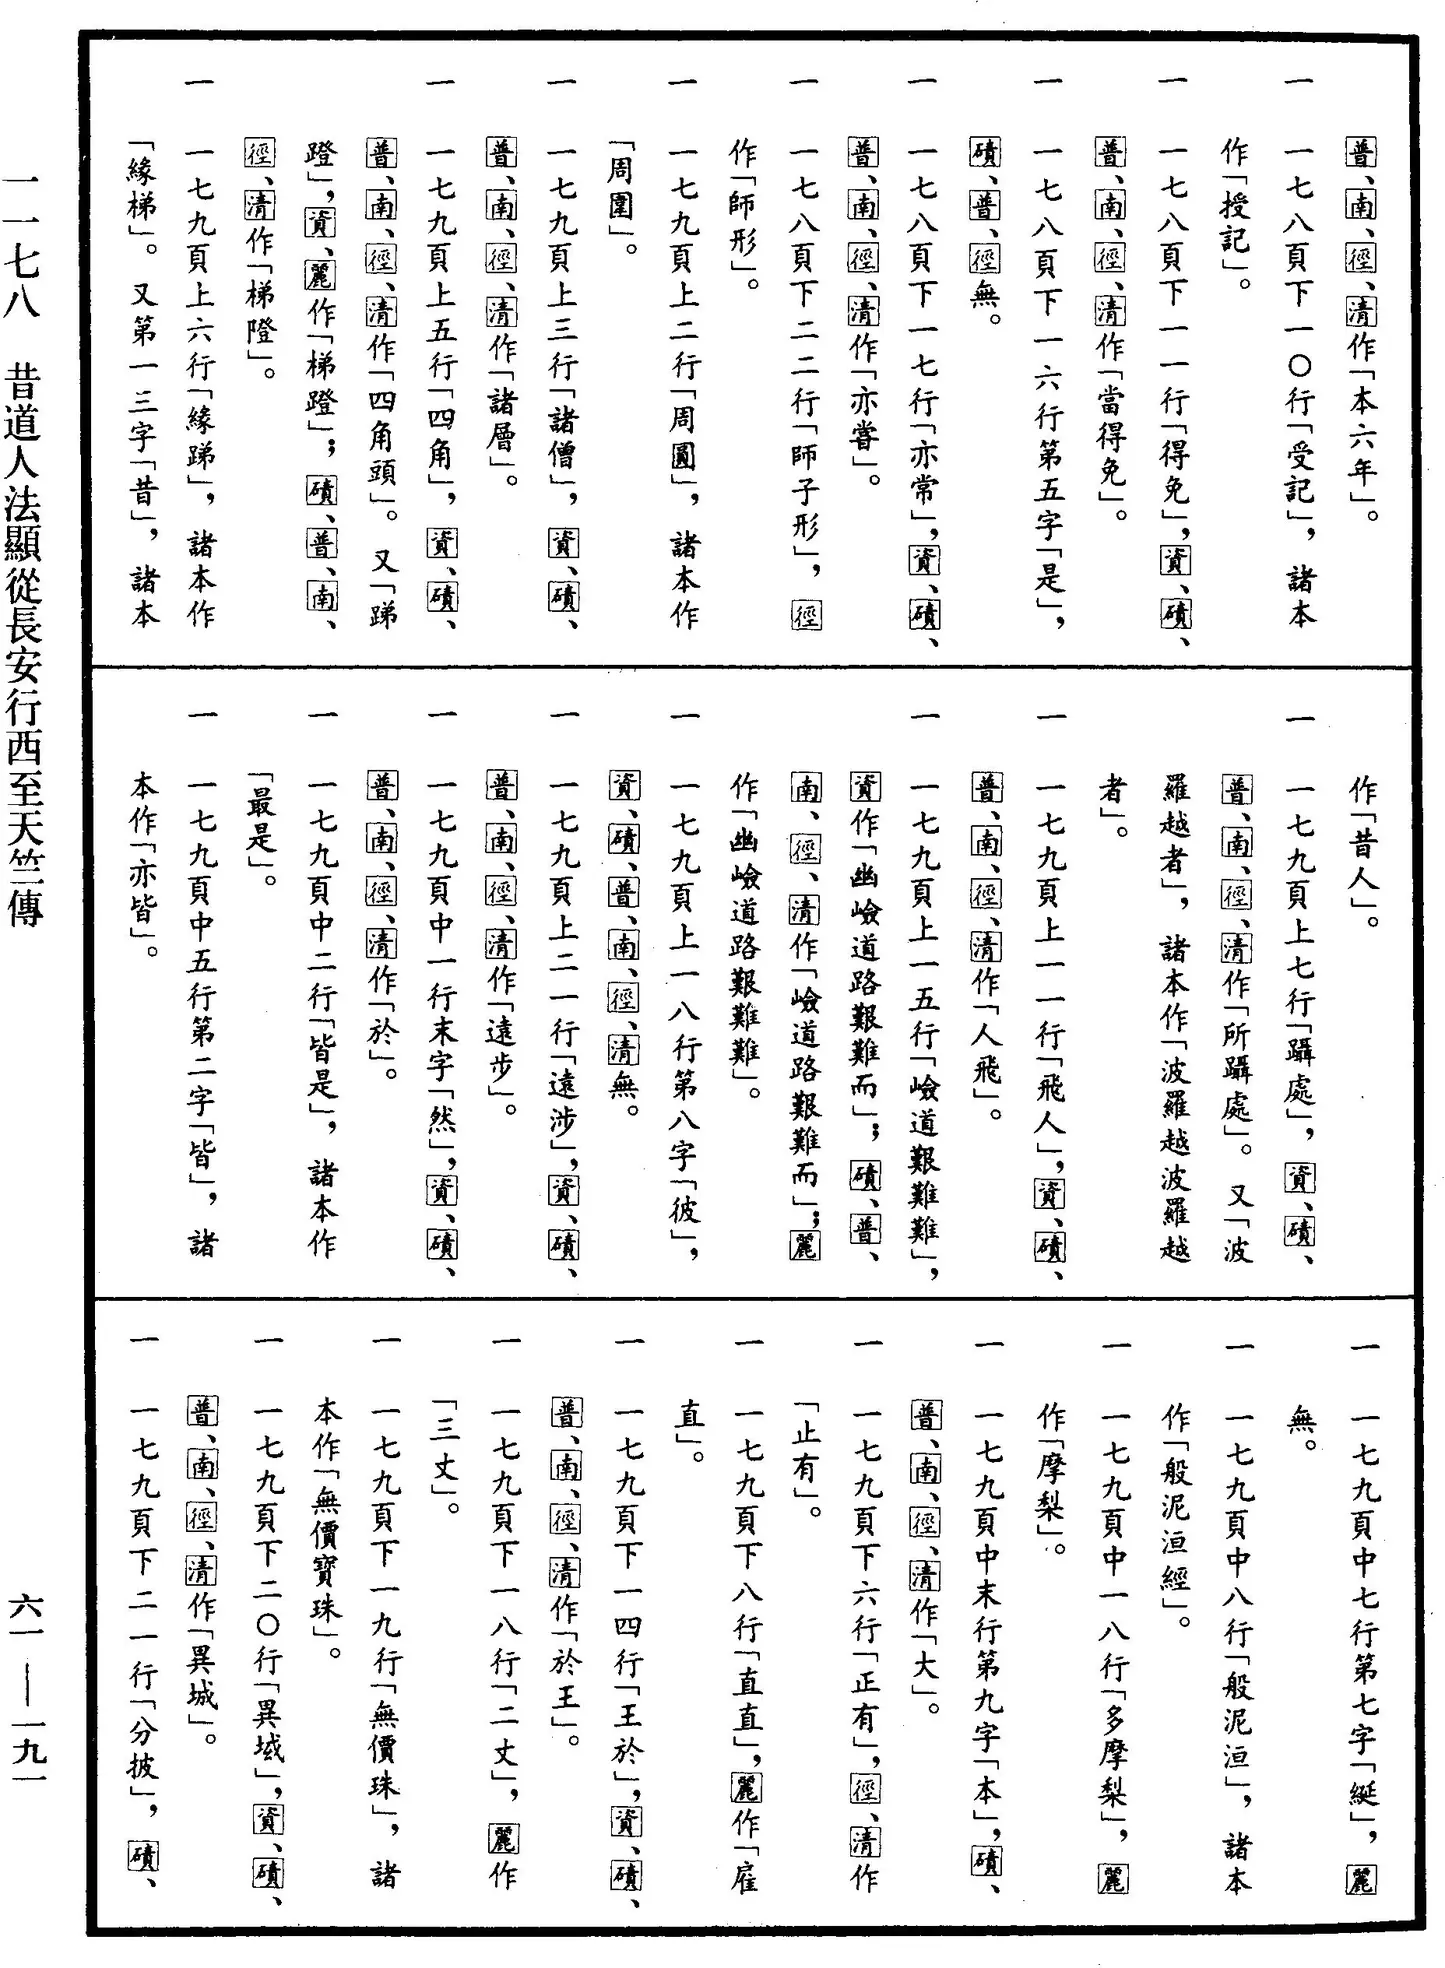 普、南、徑、清作「本六年」。
一　一七八頁下一〇行「受記」，諸本
作「授記」。
一　一七八頁下一一行「得免」，資、磧、
普、南、徑、清作「當得免」。
一　一七八頁下一六行第五字「是」，
磧、普、徑無。
一　一七八頁下一七行「亦常」，資、磧、
普、南、徑、清作「亦嘗」。
一　一七八頁下二二行「師子形」，徑
作「師形」。
一　一七九頁上二行「周圓」，諸本作
「周圍」。
一　一七九頁上三行「諸僧」，資、磧、
普、南、徑、清作「諸層」。
一　一七九頁上五行「四角」，資、磧、
普、南、徑、清作「四角頭」。又「踊
蹬」，資、麗作「梯蹬」；磧、普、南、
徑、清作「梯隥」。
一　一七九頁上六行「緣踊」，諸本作
「緣梯」。又第一三字「昔」，諸本
作「昔人」。
一　一七九頁上七行「躡處」，資、磧、
普、南、徑、清作「所躡處」。又「波
羅越者」，諸本作「波羅越波羅越
者」。
一　一七九頁上一一行「飛人」，資、磧、
普、南、徑、清作「人飛」。
一　一七九頁上一五行「嶮道艱難難」，
資作「幽嶮道路艱難而」；磧、普、
南、徑、清作「嶮道路艱難而」；麗
作「幽嶮道路艱難難」。
一　一七九頁上一八行第八字「彼」，
資、磧、普、南、徑、清無。
一　一七九頁上二一行「遠涉」，資、磧、
普、南、徑、清作「遠步」。
一　一七九頁中一行末字「然」，資、磧、
普、南、徑、清作「於」。
一　一七九頁中二行「皆是」，諸本作
「最是」。
一　一七九頁中五行第二字「皆」，諸
本作「亦皆」。
一　一七九頁中七行第七字「綖」，麗
無。
一　一七九頁中八行「般泥洹」，諸本
作「般泥洹經」。
一　一七九頁中一八行「多摩梨」，麗
作「摩梨」。
一　一七九頁中末行第九字「本」，磧、
普、南、徑、清作「大」。
一　一七九頁下六行「正有」，徑、清作
「止有」。
一　一七九頁下八行「直直」，麗作「雇
直」。
一　一七九頁下一四行「王於」，資、磧、
普、南、徑、清作「於王」。
一　一七九頁下一八行「二丈」，麗作
「三丈」。
一　一七九頁下一九行「無價珠」，諸
本作「無價寶珠」。
一　一七九頁下二〇行「異域」，資、磧、
普、南、徑、清作「異城」。
一　一七九頁下二一行「分披」，磧、
一一七八　昔道人法顯從長安行西至天竺傳
六一—一九一